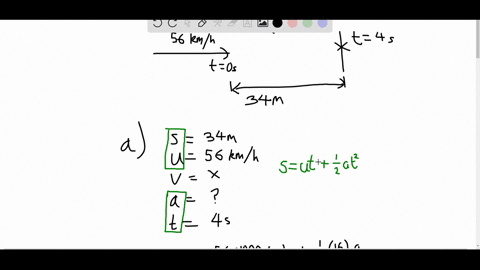 56 km/h
t=0s
t=4s
34m
a)
s = 34m
u = 56 km/h
v = x
a = ?
t = 4s
s=ut+½at²